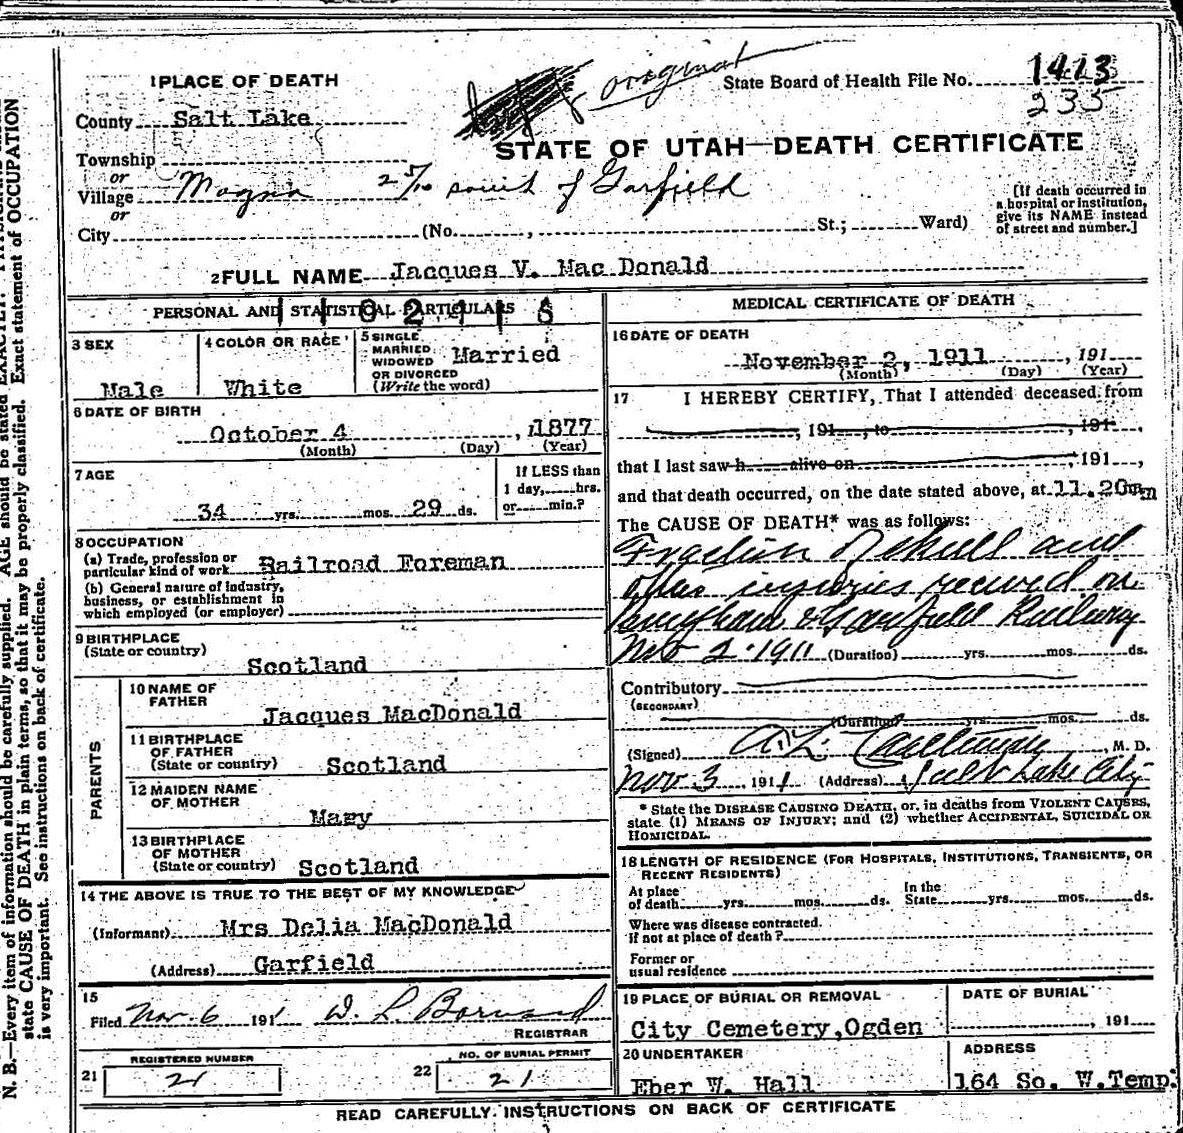 original
1 PLACE OF DEATH
State Board of Health File No. 1413
235
County Salt Lake
STATE OF UTAH—DEATH CERTIFICATE
Township
or
Village Magna 2 5/10 south of Garfield
or
City (No. , St.; Ward)
[If death occurred in
a hospital or institution,
give its NAME instead
of street and number.]
2 FULL NAME Jacques V. Mac Donald
PERSONAL AND STATISTICAL PARTICULARS
3 SEX
Male
4 COLOR OR RACE
White
5 SINGLE
MARRIED
WIDOWED
OR DIVORCED
(Write the word)
Married
6 DATE OF BIRTH
October 4 , 1877
(Month) (Day) (Year)
7 AGE
34 yrs. mos. 29 ds.
If LESS than
1 day, hrs.
or min.?
8 OCCUPATION
(a) Trade, profession or
particular kind of work Railroad Foreman
(b) General nature of industry,
business, or establishment in
which employed (or employer)
9 BIRTHPLACE
(State or country)
Scotland
PARENTS
10 NAME OF
FATHER
Jacques MacDonald
11 BIRTHPLACE
OF FATHER
(State or country) Scotland
12 MAIDEN NAME
OF MOTHER
Mary
13 BIRTHPLACE
OF MOTHER
(State or country) Scotland
14 THE ABOVE IS TRUE TO THE BEST OF MY KNOWLEDGE
(Informant) Mrs Delia MacDonald
(Address) Garfield
15
Filed Nov. 6 1911 W. L.
REGISTRAR
REGISTERED NUMBER
21 21
NO. OF BURIAL PERMIT
22 21
MEDICAL CERTIFICATE OF DEATH
16 DATE OF DEATH
November 2, 1911 , 191
(Month) (Day) (Year)
17 I HEREBY CERTIFY, That I attended deceased from
, 191 , to , 191 ,
that I last saw h alive on , 191 ,
and that death occurred, on the date stated above, at 11.20 m
The CAUSE OF DEATH* was as follows:
Fraction of skull and
other injuries received on
Bingham & Garfield Railway
Nov 2 - 1911 (Duration) yrs. mos. ds.
Contributory
(SECONDARY)
(Duration) yrs. mos. ds.
(Signed) , M. D.
Nov 3, 1911 (Address) Salt Lake City
* State the DISEASE CAUSING DEATH, or, in deaths from VIOLENT CAUSES,
state (1) MEANS OF INJURY; and (2) whether ACCIDENTAL, SUICIDAL OR
HOMICIDAL.
18 LENGTH OF RESIDENCE (FOR HOSPITALS, INSTITUTIONS, TRANSIENTS, OR
RECENT RESIDENTS)
At place
of death yrs. mos. ds.
In the
State yrs. mos. ds.
Where was disease contracted.
if not at place of death?
Former or
usual residence
19 PLACE OF BURIAL OR REMOVAL
City Cemetery, Ogden
DATE OF BURIAL
, 191
20 UNDERTAKER
Eber W. Hall
ADDRESS
164 So. W. Temp.
READ CAREFULLY. INSTRUCTIONS ON BACK OF CERTIFICATE
N. B.—Every item of information should be carefully supplied. AGE should be stated EXACTLY.
state CAUSE OF DEATH in plain terms, so that it may be properly classified. Exact statement of OCCUPATION
is very important. See instructions on back of certificate.